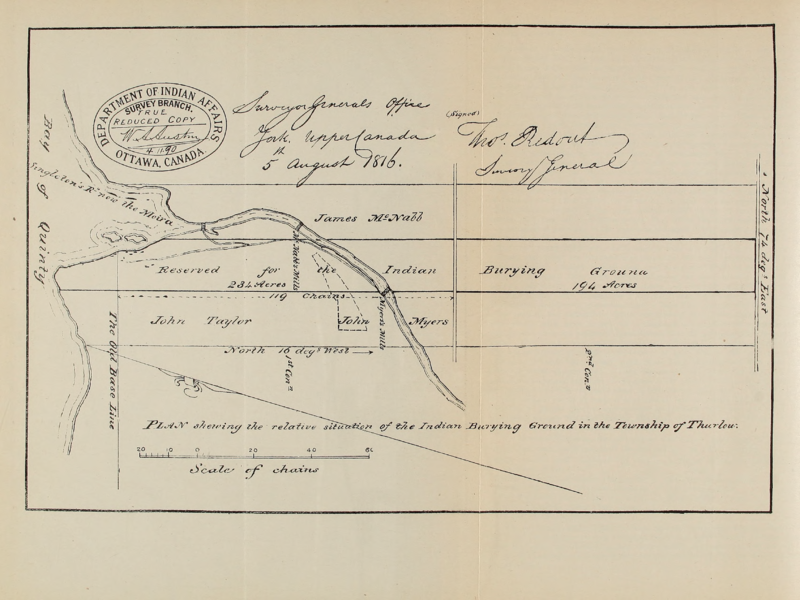 DEPARTMENT OF INDIAN AFFAIRS
SURVEY BRANCH.
TRUE
REDUCED COPY
W.A. Austin
4.11.90
OTTAWA, CANADA.
Surveyor Generals Office
York, Upper Canada
5th August 1816.
(Signed)
Thos. Ridout
Survey General
Bay of Quinty
Singleton's R. now the Moira
James McNabb
McNabb's Mills
Reserved for the Indian Burying Ground
234 Acres
194 Acres
119 Chains
John Taylor
John Myers
Myers Mills
North 16 degs West
1st Conn
2nd Conn
The Old Base Line
North 74 degs East
PLAN shewing the relative situation of the Indian Burying Ground in the Township of Thurlow.
20 10 0 20 40 60
Scale of chains